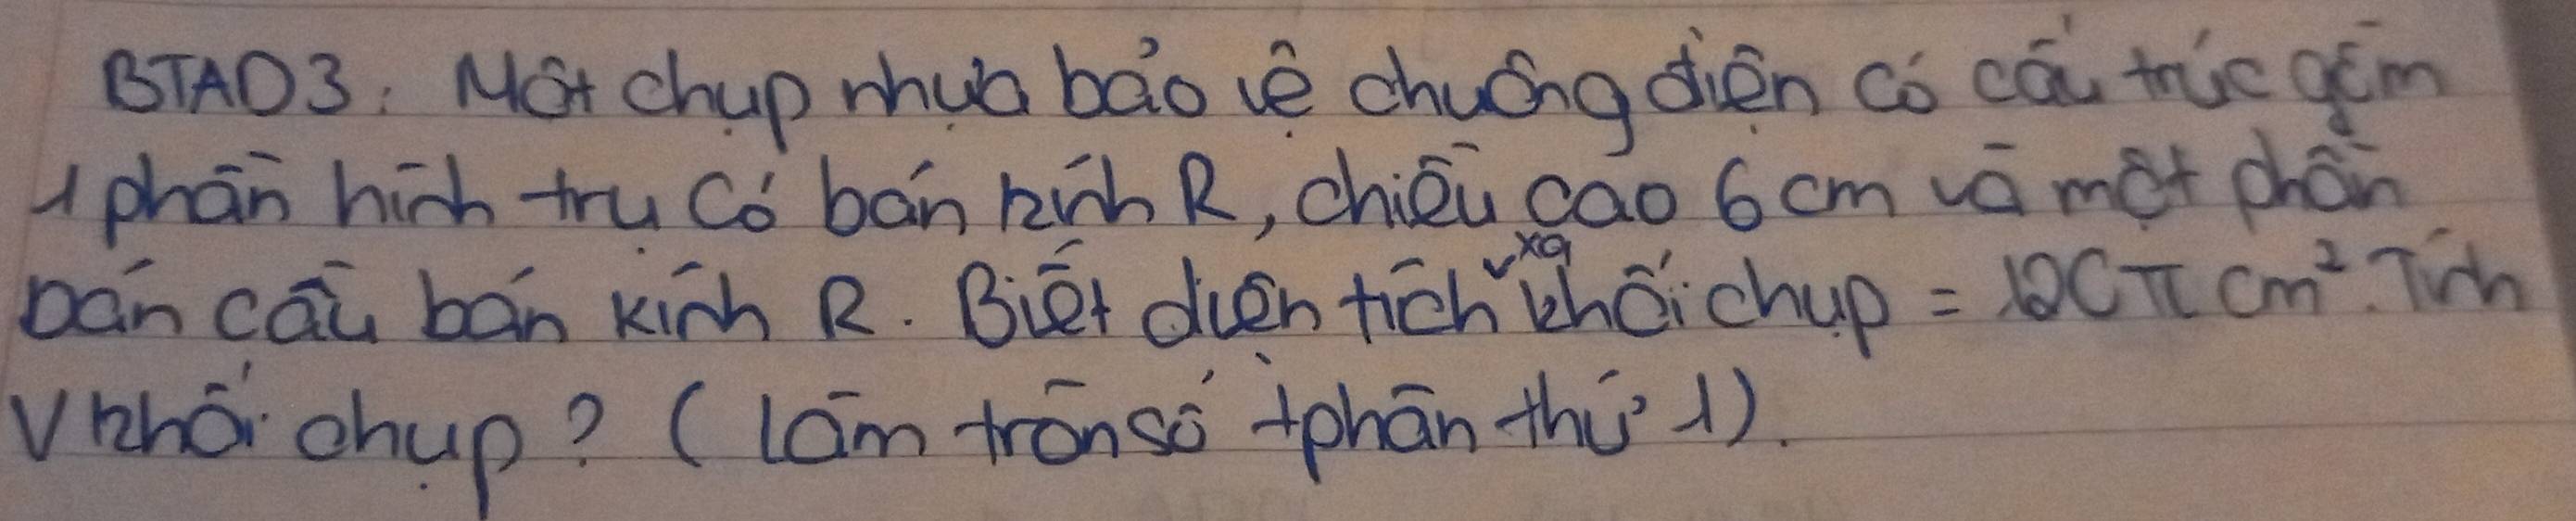 BTAD3: Một chụp nhựa bảo vệ chuông điện có cấu trúc gồm
1 phần hình trụ có bán kính R, chiều cao 6 cm và một phần
bán cầu bán kính R. Biết diện tích xq khối chụp = π cm². Tính
V khối chụp? (làm tròn số tphân thứ 1).